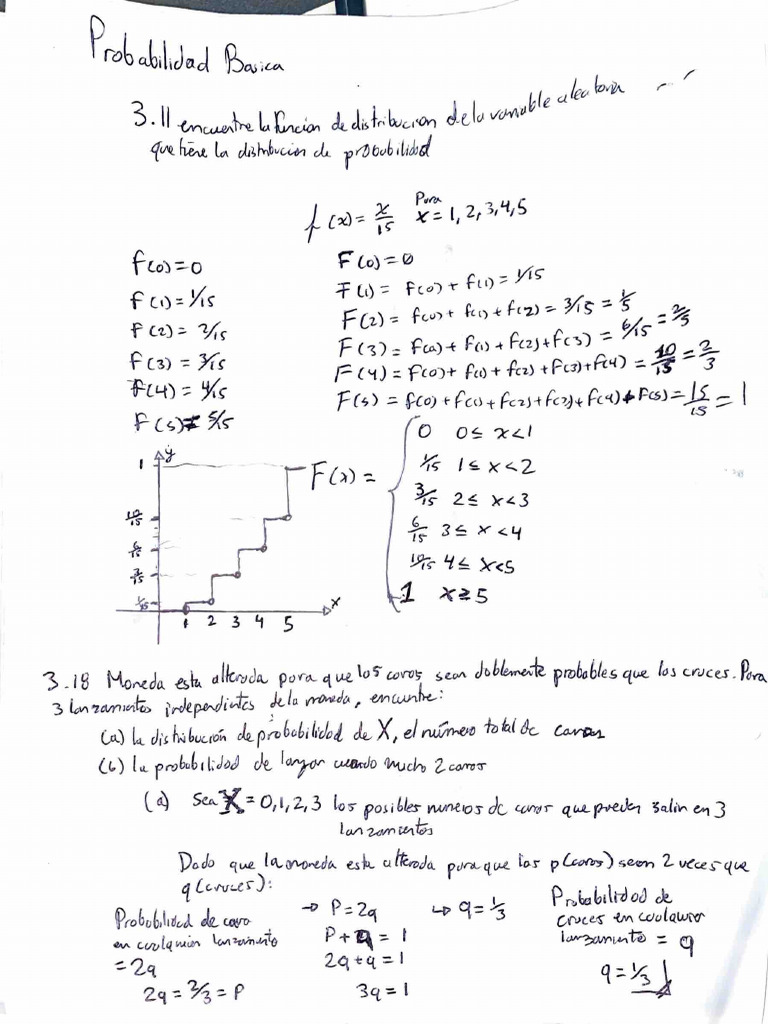 Probabilidad Basica
3.11 encuentre la funcion de distribucion de la variable aleatoria
que tiene la distribucion de probabilidad
f(x) = x/15 Para x = 1, 2, 3, 4, 5
f(0) = 0
f(1) = 1/15
f(2) = 2/15
f(3) = 3/15
f(4) = 4/15
f(5) = 5/15
F(0) = 0
F(1) = f(0) + f(1) = 1/15
F(2) = f(0) + f(1) + f(2) = 3/15 = 1/5
F(3) = f(0) + f(1) + f(2) + f(3) = 6/15 = 2/5
F(4) = f(0) + f(1) + f(2) + f(3) + f(4) = 10/15 = 2/3
F(5) = f(0) + f(1) + f(2) + f(3) + f(4) + f(5) = 15/15 = 1
y
1
10/15
6/15
3/15
1/15
1 2 3 4 5
x
F(x) =
0 0 ≤ x < 1
1/15 1 ≤ x < 2
3/15 2 ≤ x < 3
6/15 3 ≤ x < 4
10/15 4 ≤ x < 5
1 x ≥ 5
3.18 Moneda esta alterada para que los caras sean doblemente probables que las cruces. Para
3 lanzamientos independientes de la moneda, encuntre:
(a) la distribución de probabilidad de X, el número total de caras
(b) la probabilidad de lanzar cuando mucho 2 caras
(a) Sea X = 0, 1, 2, 3 los posibles numeros de caras que pueden salir en 3
lanzamientos
Dado que la moneda esta alterada para que las p(caras) sean 2 veces que
q(cruces):
Probabilidad de cara
en cualquier lanzamiento
= 2q
2q = 2/3 = P
→ P = 2q
P + q = 1
2q + q = 1
3q = 1
↳ q = 1/3
Probabilidad de
cruces en cualquier
lanzamiento = q
q = 1/3